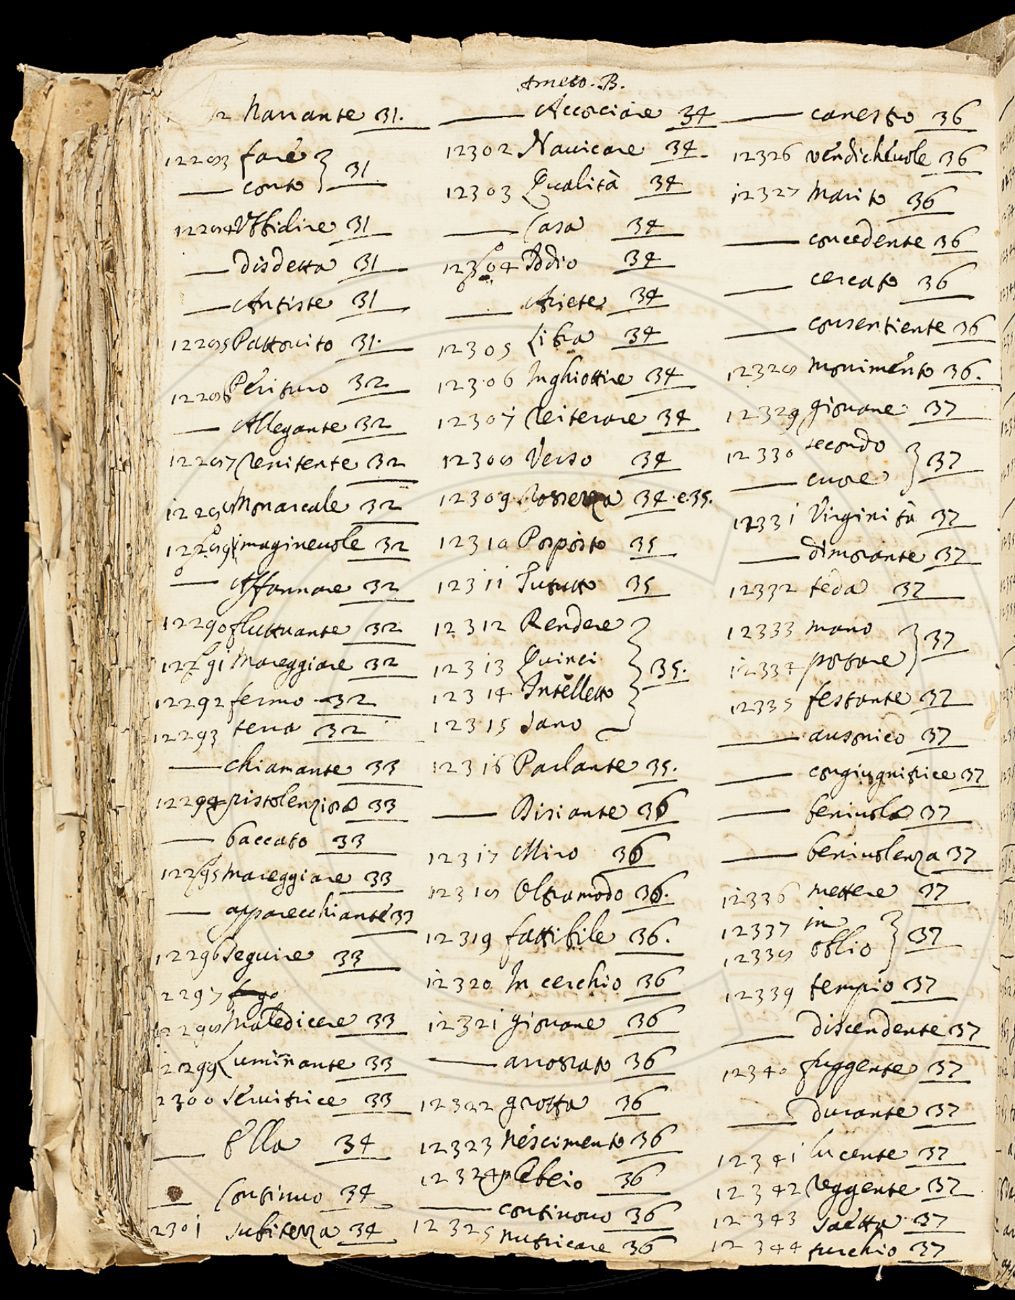 Ameto. B.
2 Narrante 31.
12283 fare } 31
— conto
12284 Ubbidire 31
— disdetta 31
— Antiste 31
12285 Pattovito 31.
12286 Perituro 32
— Allegante 32
12287 Renitente 32
12288 Monarcale 32
12289 imaginevole 32
— Affannare 32
12290 fluttuante 32
12291 Mareggiare 32
12292 fermo 32
12293 terra 32
— chiamante 33
12294 pistolenzioso 33
— baccato 33
12295 Mareggiare 33
— apparecchiante 33
12296 Seguire 33
2297
12298 Maledicere 33
12299 Luminante 33
2300 Servitrice 33
— Ella 34
— Continuo 34
2301 subitezza 34
— Accorciare 34
12302 Navicare 34.
12303 Qualità 34
— Casa 34
12304 Odio 34
— Ariete 34
12305 Libra 34
12306 Inghiottire 34
12307 Reiterare 34
12308 Verso 34
12309 Rossezza 34. e 35.
12310 Proposito 35
12311 Tututto 35
12312 Rendere
12313 Quinci } 35.
12314 Intelletto
12315 sano
12316 Parlante 35.
— Disiante 36
12317 Miro 36
12318 Oltramodo 36.
12319 fattibile 36.
12320 In cerchio 36
12321 giovane 36
— arrostato 36
12322 grotta 36
12323 Nescimento 36
12324 plebeio 36
— continovo 36
12325 nutricare 36
— canestro 36
12326 vendichevole 36
12327 Marito 36
— concedente 36
— cercato 36
— consentiente 36
12328 Monimento 36.
12329 giovane 37
12330 secondo } 37
— cuore
12331 Virginità 37
— dimorante 37
12332 teda 37
12333 mano } 37
12334 portare
12335 festante 37
— ausonico 37
— congiugnitrice 37
— benivolo 37
— benivolenza 37
12336 mettere 37
12337 in } 37
12338 oblio
12339 tempio 37
— discendente 37
12340 fuggente 37
— durante 37
12341 lucente 37
12342 Reggente 37
12343 saetta 37
12344 turchio 37